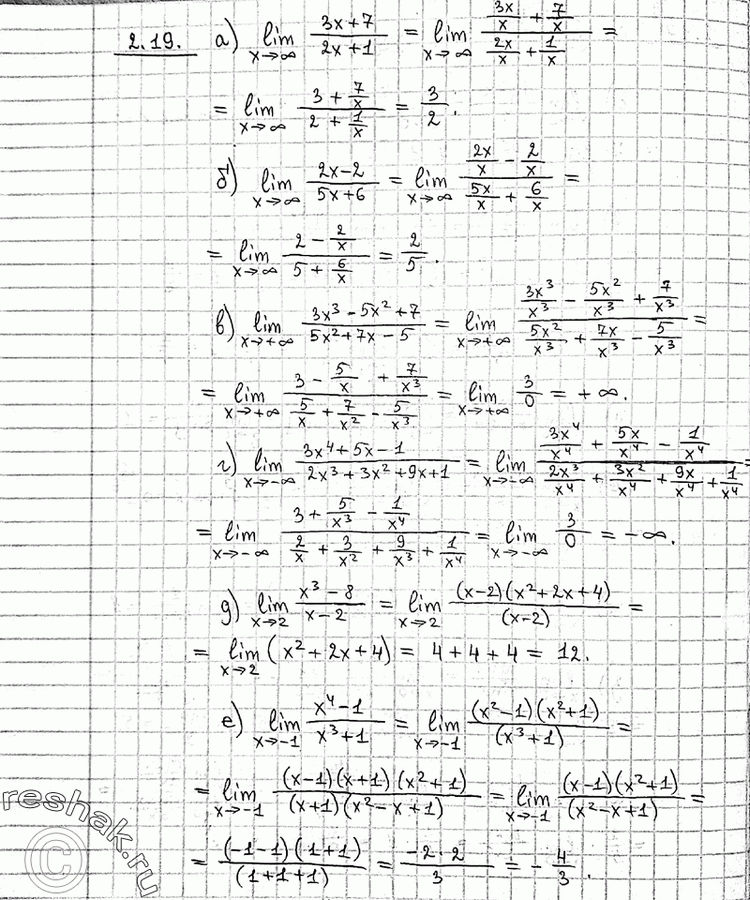 2.19. а) lim x→∞ (3x+7)/(2x+1) = lim x→∞ (3x/x + 7/x)/(2x/x + 1/x) =
= lim x→∞ (3 + 7/x)/(2 + 1/x) = 3/2.
б) lim x→∞ (2x-2)/(5x+6) = lim x→∞ (2x/x - 2/x)/(5x/x + 6/x) =
= lim x→∞ (2 - 2/x)/(5 + 6/x) = 2/5.
в) lim x→+∞ (3x³ - 5x² + 7)/(5x² + 7x - 5) = lim x→+∞ (3x³/x³ - 5x²/x³ + 7/x³)/(5x²/x³ + 7x/x³ - 5/x³) =
= lim x→+∞ (3 - 5/x + 7/x³)/(5/x + 7/x² - 5/x³) = lim x→+∞ 3/0 = +∞.
г) lim x→-∞ (3x⁴ + 5x - 1)/(2x³ + 3x² + 9x + 1) = lim x→-∞ (3x⁴/x⁴ + 5x/x⁴ - 1/x⁴)/(2x³/x⁴ + 3x²/x⁴ + 9x/x⁴ + 1/x⁴) =
= lim x→-∞ (3 + 5/x³ - 1/x⁴)/(2/x + 3/x² + 9/x³ + 1/x⁴) = lim x→-∞ 3/0 = -∞.
д) lim x→2 (x³ - 8)/(x - 2) = lim x→2 (x-2)(x² + 2x + 4)/(x-2) =
= lim x→2 (x² + 2x + 4) = 4 + 4 + 4 = 12.
е) lim x→-1 (x⁴ - 1)/(x³ + 1) = lim x→-1 (x² - 1)(x² + 1)/(x³ + 1) =
= lim x→-1 (x-1)(x+1)(x² + 1)/(x+1)(x² - x + 1) = lim x→-1 (x-1)(x² + 1)/(x² - x + 1) =
= (-1-1)(1+1)/(1+1+1) = -2·2/3 = -4/3.
reshak.ru
©